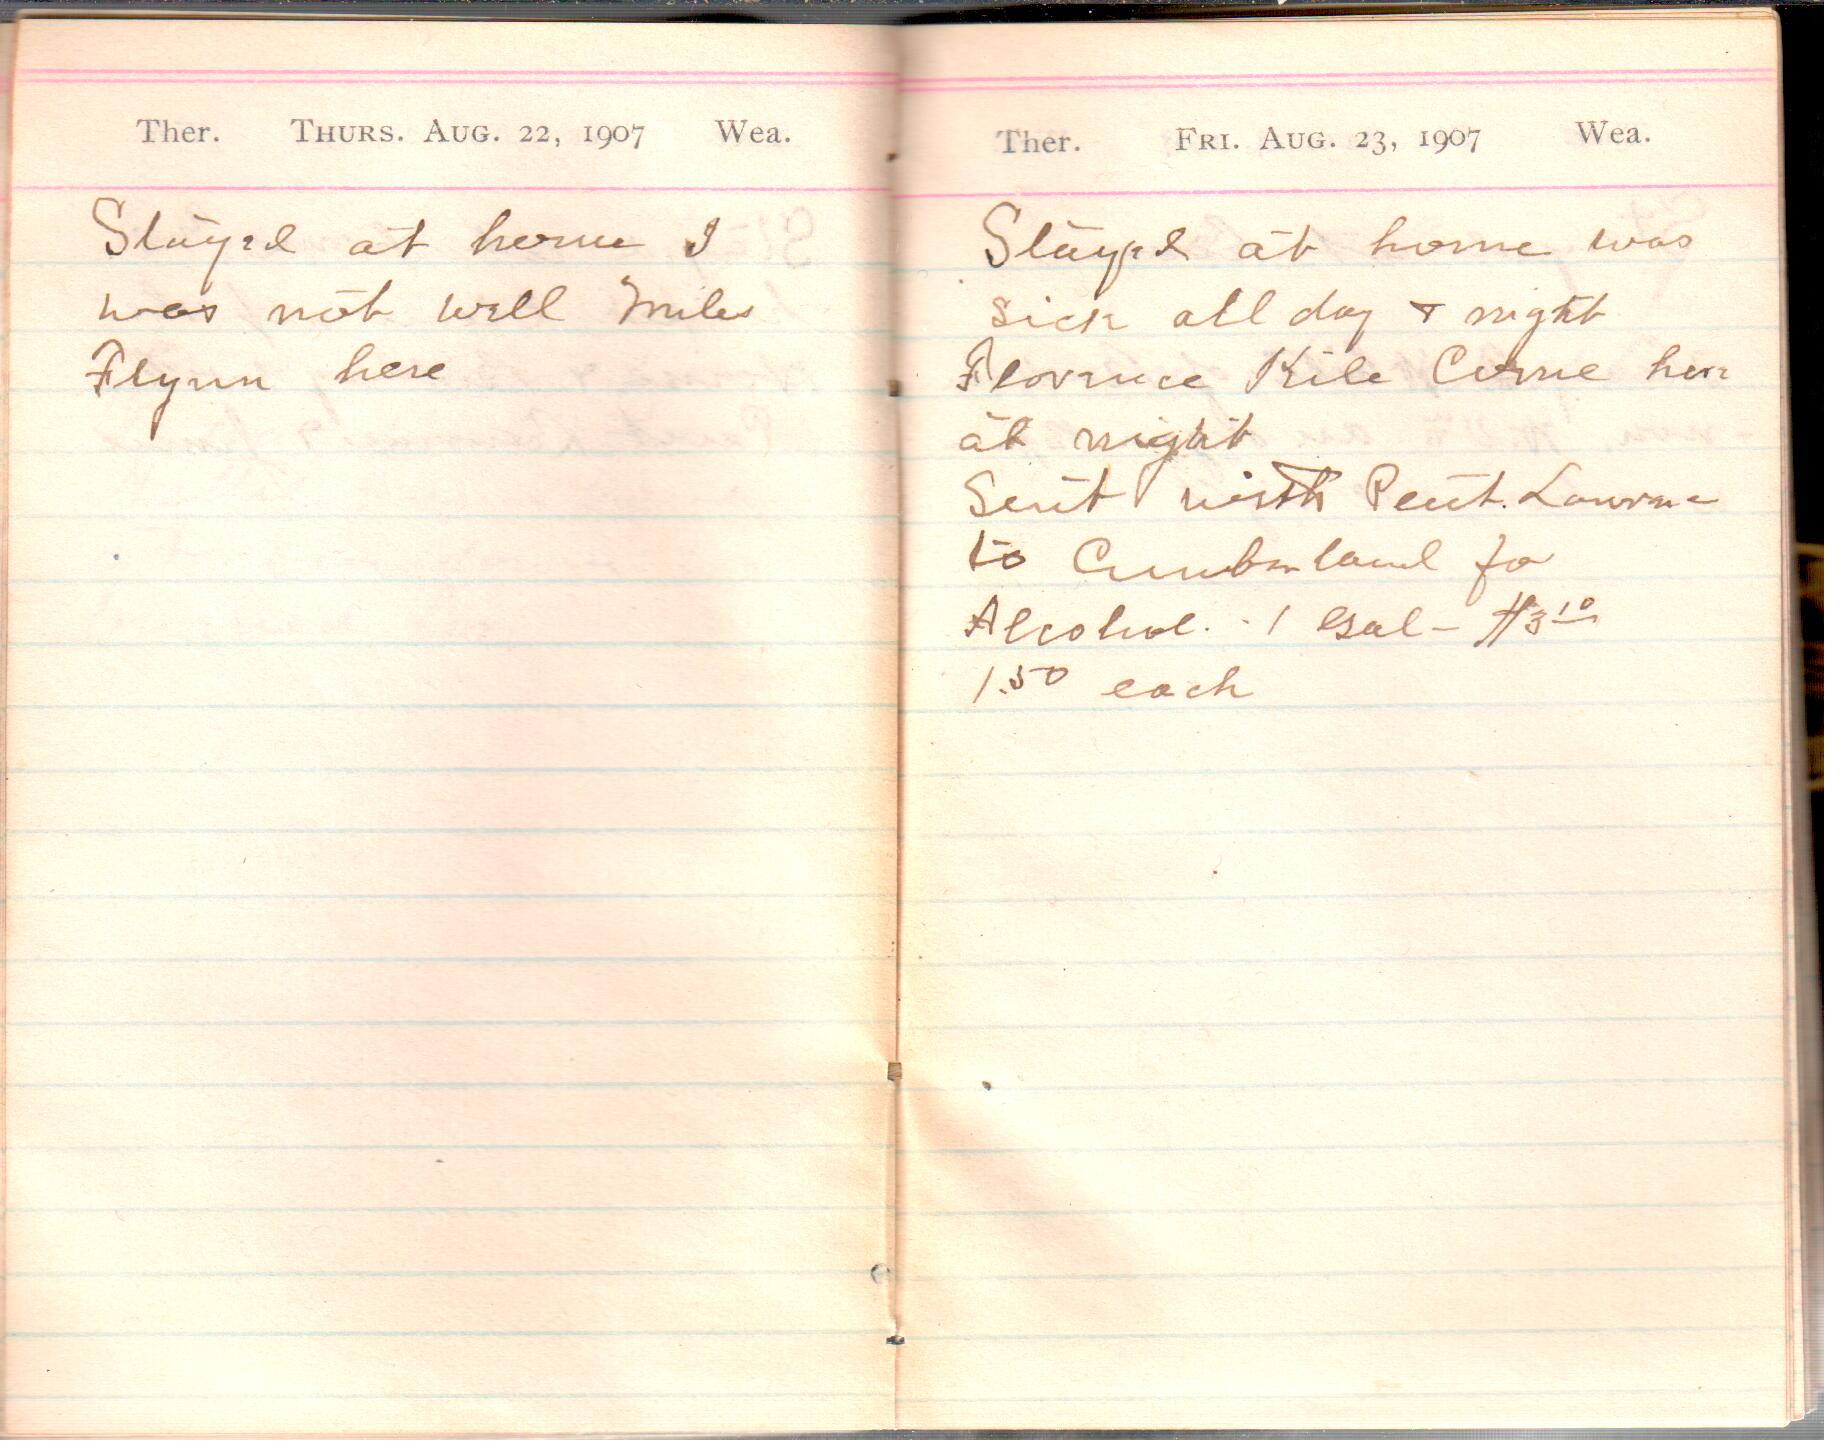 Ther. THURS. AUG. 22, 1907 Wea.
Stayed at home I
was not well Miles
Flynn here
Ther. FRI. AUG. 23, 1907 Wea.
Stayed at home was
sick all day & night
Florence Kile Come here
at night
Sent with
to Cumberland fo
Alcohol. - 1 Gal - $3 10
1.50 each